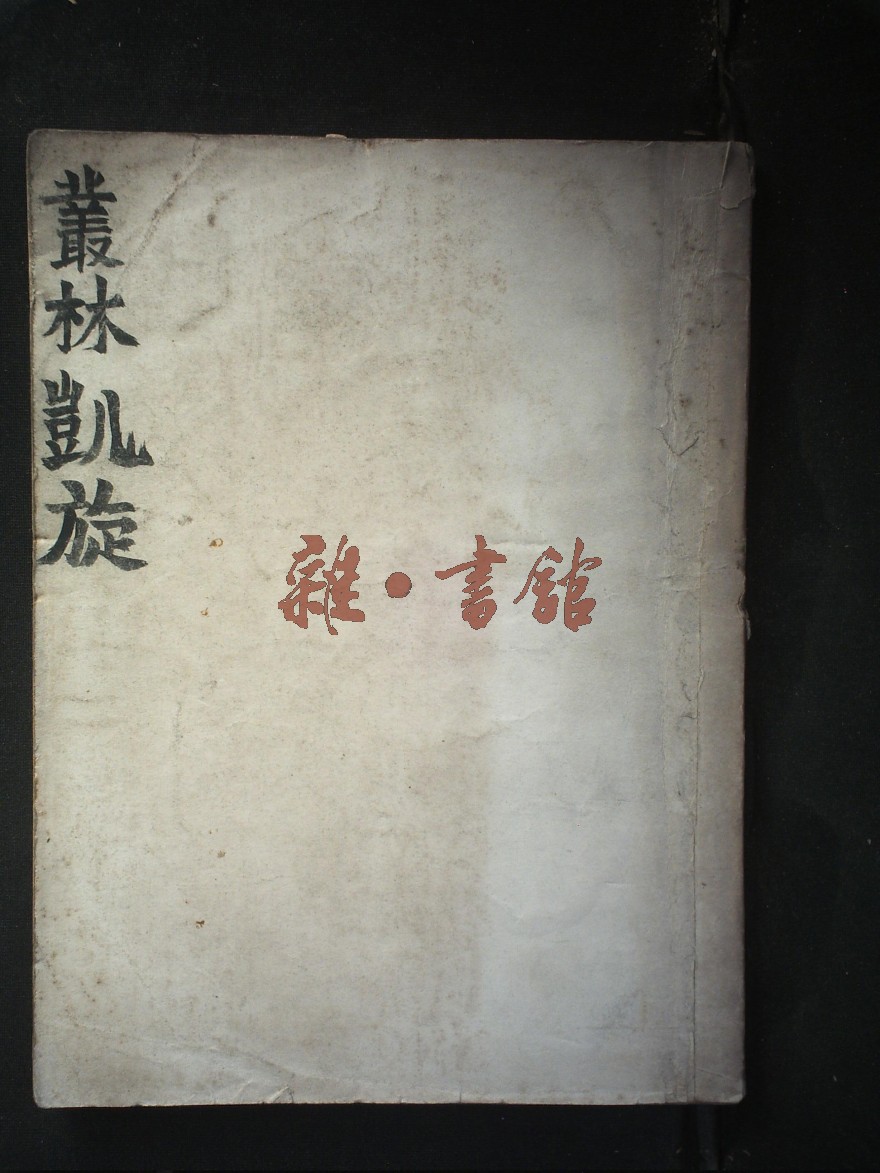 叢林凱旋
雜·書館